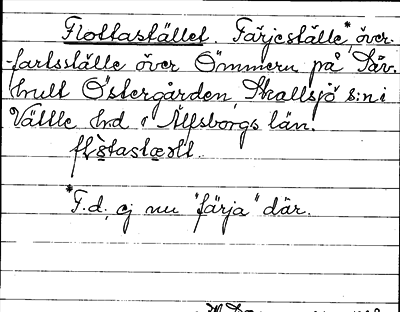 Flottastället. Färjeställe,* över-
fartsställe över Ömmern på Säv-
hult Östergården, Skallsjö s:n i
Vättle hd i Älfsborgs län.
*F.d., ej nu "färja" där.